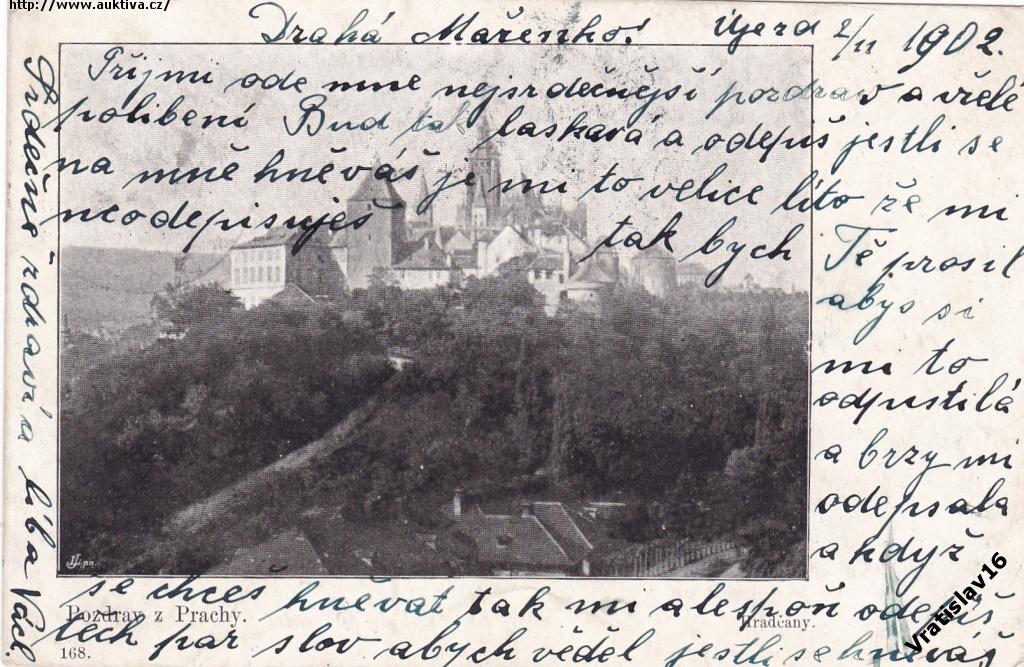 http://www.auktiva.cz/
Drahá Mařenko! Újezd 2/11 1902.
Přijmi ode mne nejsrdečnější pozdrav a vřelé
políbení Buď tak laskavá a odepiš jestli se
na mně hněváš je mi to velice líto že mi
neodepisuješ tak bych
Tě prosil
abys si
mi to
odpustila
a brzy mi
odepsala
a když
se chceš hněvat tak mi alespoň odepiš
těch pár slov abych věděl jestli se hněváš
Srdečně zdraví a líbá Václ.
Pozdrav z Prahy.
Hradčany.
168.
Vratislav16